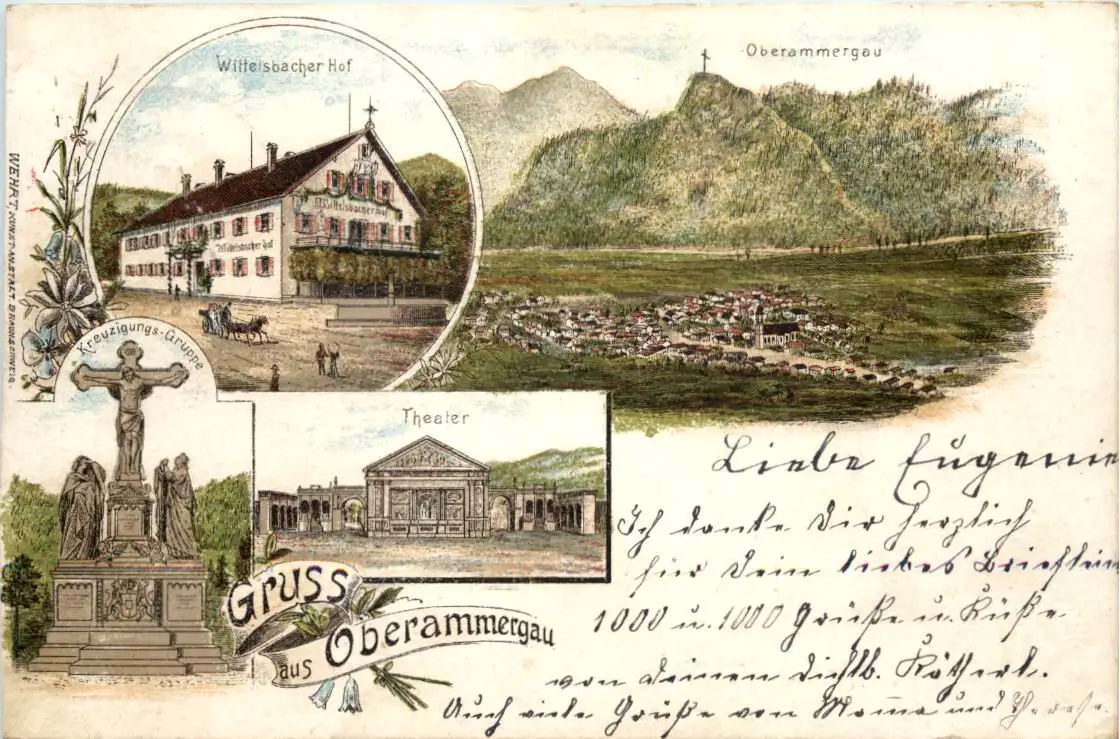 Wittelsbacher Hof
Oberammergau
Wittelsbacher Hof
Wittelsbacher Hof
WEHRT. KUNST-ANSTALT BRAUNSCHWEIG.
Kreuzigungs-Gruppe
Theater
Gruss
aus Oberammergau
Liebe Eugenie
Ich danke Dir herzlich
für Dein liebes Brieflein
1000 u. 1000 Grüße u. Küße
von deinen
Auch viele Grüße von Mama und